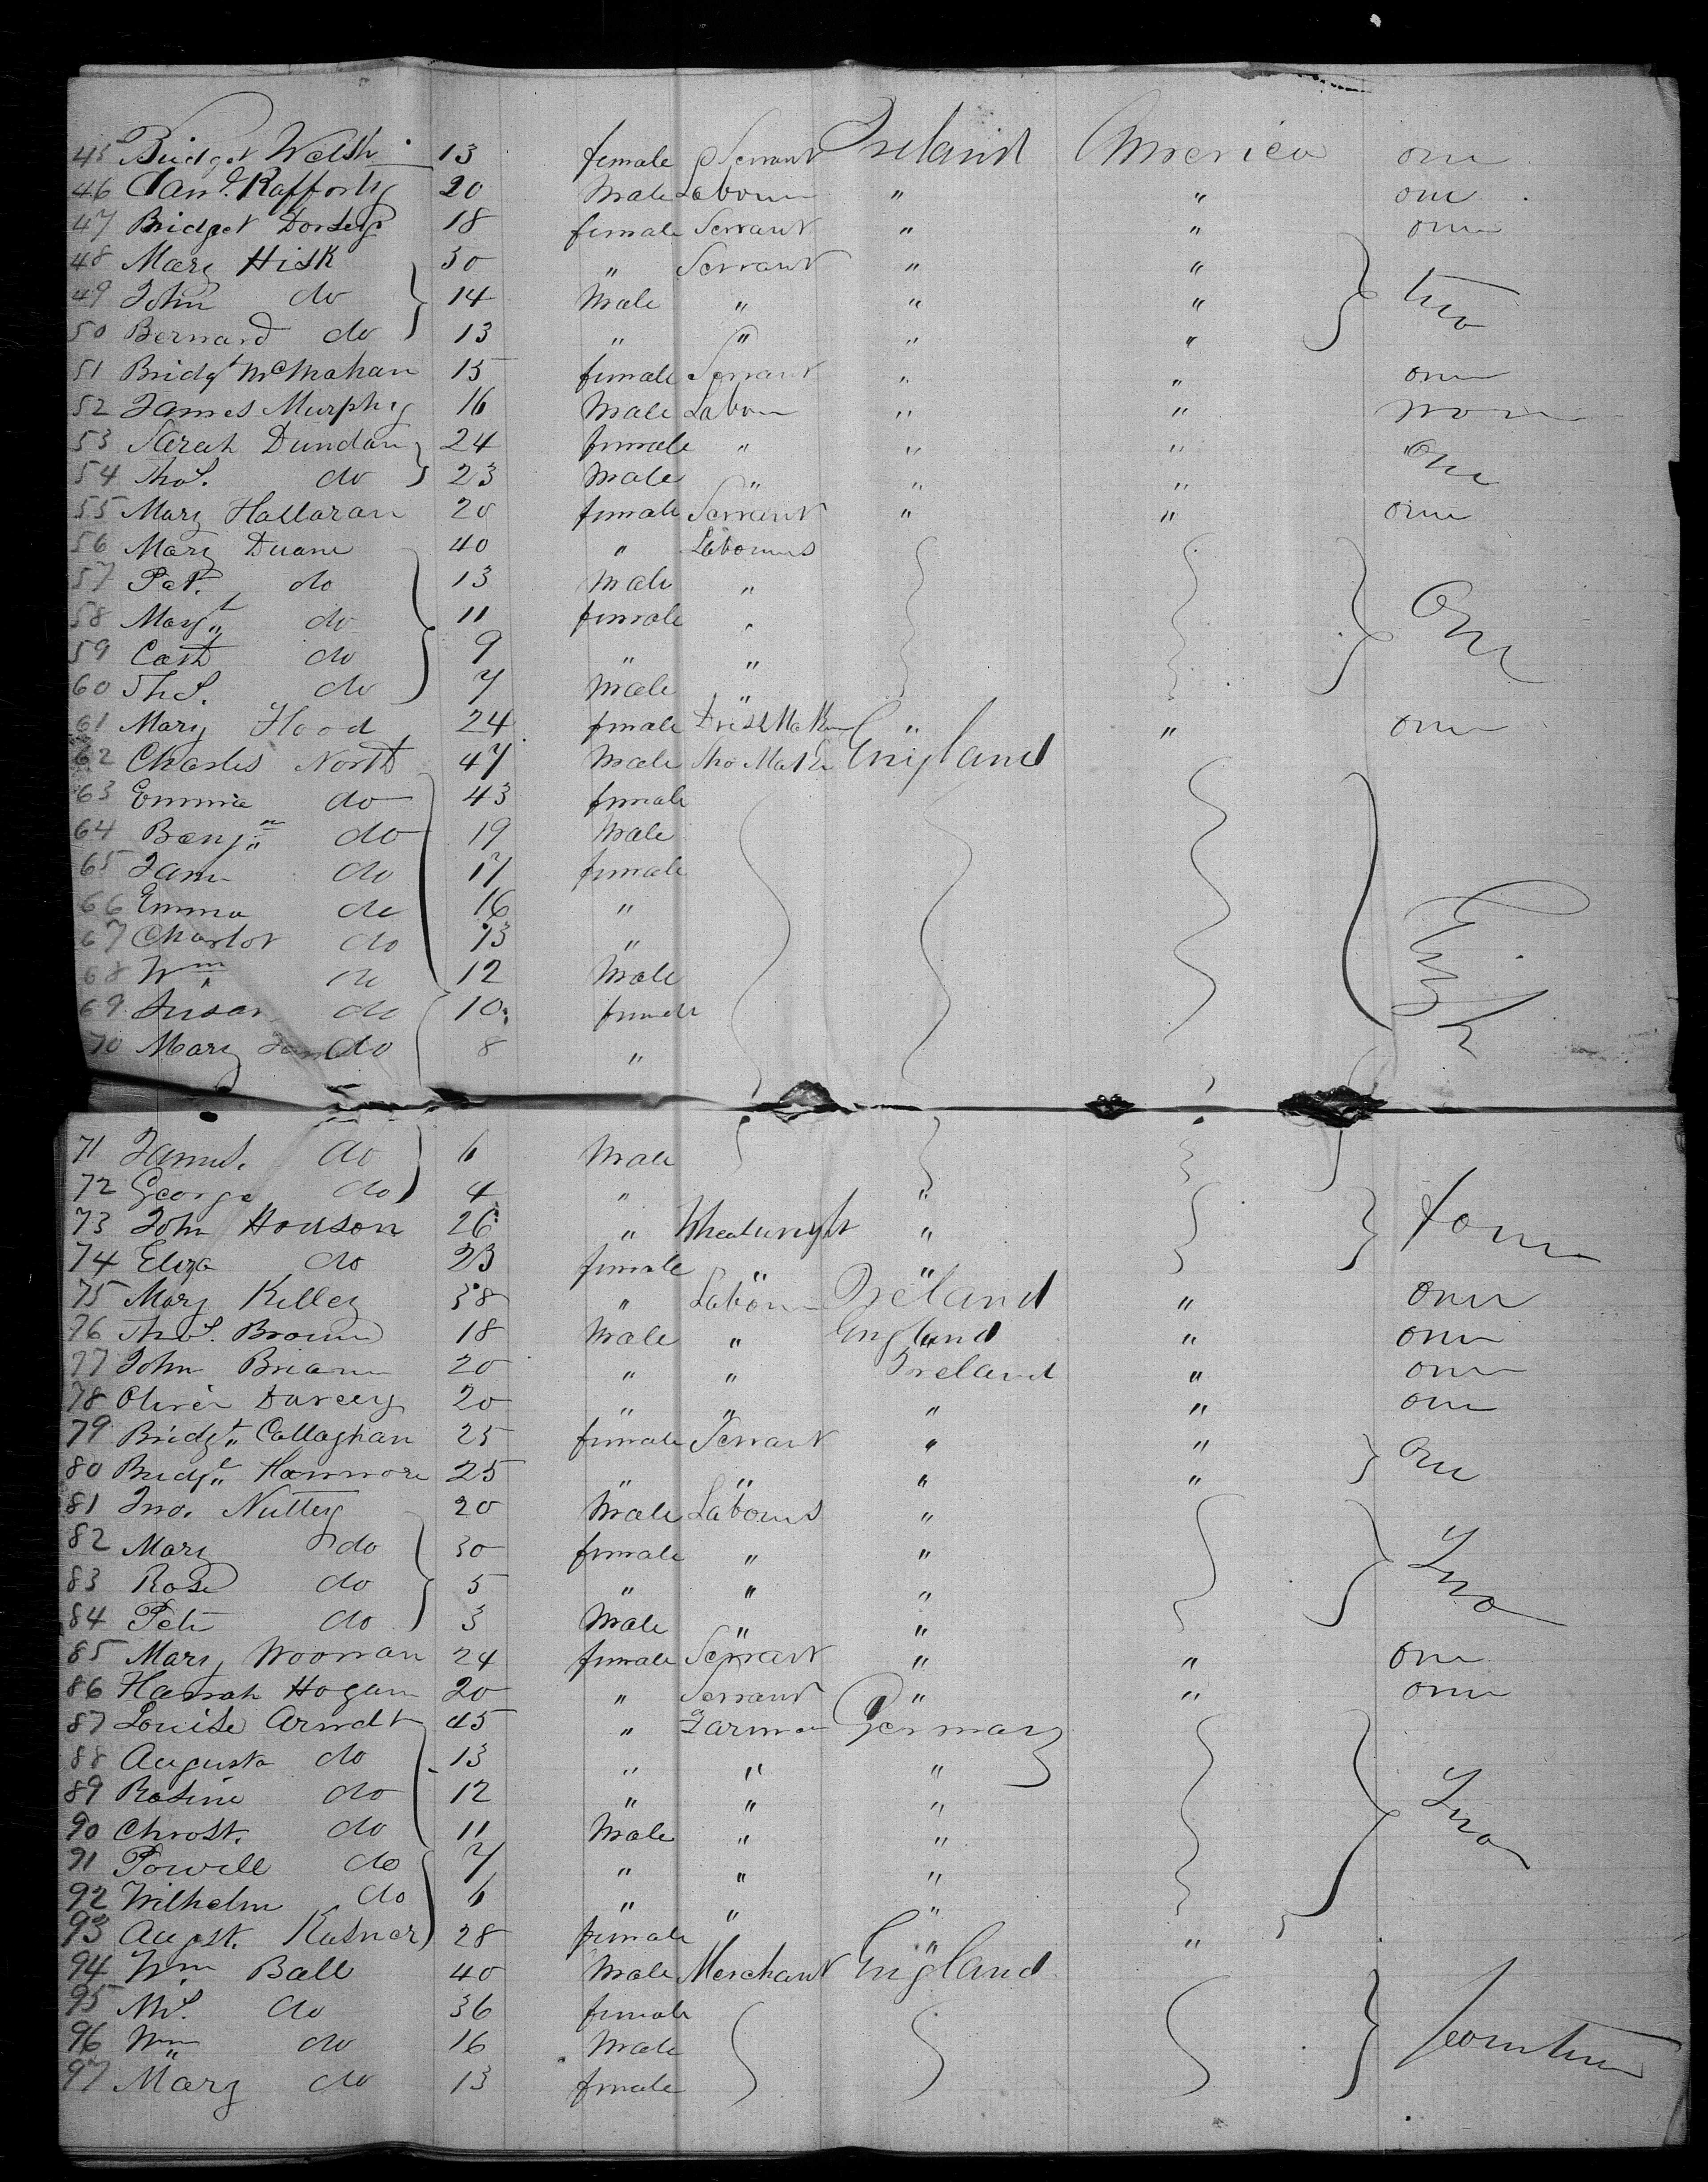 45 Bridget Welsh 13 female Servant Ireland America one
46 Danl. Rafforty 20 Male Labourer " " one
47 Bridget Dorsey 18 female Servant " " one
48 Mary Hisk 50 " Servant " "
49 John do 14 Male " " " two
50 Bernard do 13 " " " "
51 Bridgt McMahan 15 female Servant " " one
52 James Murphy 16 Male Labour " " none
53 Sarah Dundan 24 female " " "
54 Thos. do 23 Male " " " One
55 Mary Hallaran 20 female Servant " " one
56 Mary Duane 40 " Labourers
57 Pat. do 13 Male "
58 Margt. do 11 female " One
59 Cath do 9 " "
60 Ths. do 7 Male "
61 Mary Flood 24 female Dress Maker " " one
62 Charles North 47 Male Sho Maker England
63 Emmie do 43 female
64 Benjn do 19 Male
65 Jane do 17 female
66 Emma do 16 "
67 Charlot do 13 "
68 Wm do 12 Male
69 Susan do 10 female
70 Mary Jane do 8 "
71 James. do 6 Male
72 George do 4 " "
73 John Hodson 26 " Wheelwright " four
74 Eliza do 23 female " "
75 Mary Kelley 38 " Labour Ireland " one
76 Thos. Brown 18 Male " England " one
77 John Briann 20 " " Ireland " one
78 Oliver Darcey 20 " " " " one
79 Bridgt. Callaghan 25 female Servant " "
80 Bridgt. Hanmore 25 " " " " One
81 Jno. Nuttey 20 Male Labourers "
82 Mary do 30 female " "
83 Rose do 5 " " " Two
84 Peter do 3 Male " "
85 Mary Noonan 24 female Servant " " one
86 Hannah Hogan 20 " Servant " " one
87 Louise Arndt 45 " Farmer Germany
88 Augusta do 13 " " "
89 Rosine do 12 " " " Two
90 Christ. do 11 Male " "
91 Powell do 7 " " "
92 Wilhelm do 6 " " "
93 Augst. Kusner 28 female " "
94 Wm Ball 40 Male Merchant England
95 Ms. do 36 female
96 Wm do 16 Male fourteen
97 Mary do 13 female